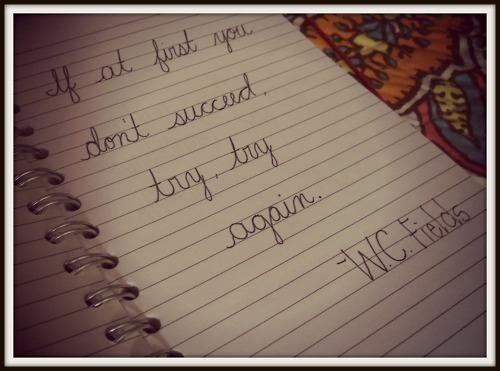 If at first you
don't succeed,
try, try
again.
-W.C. Fields